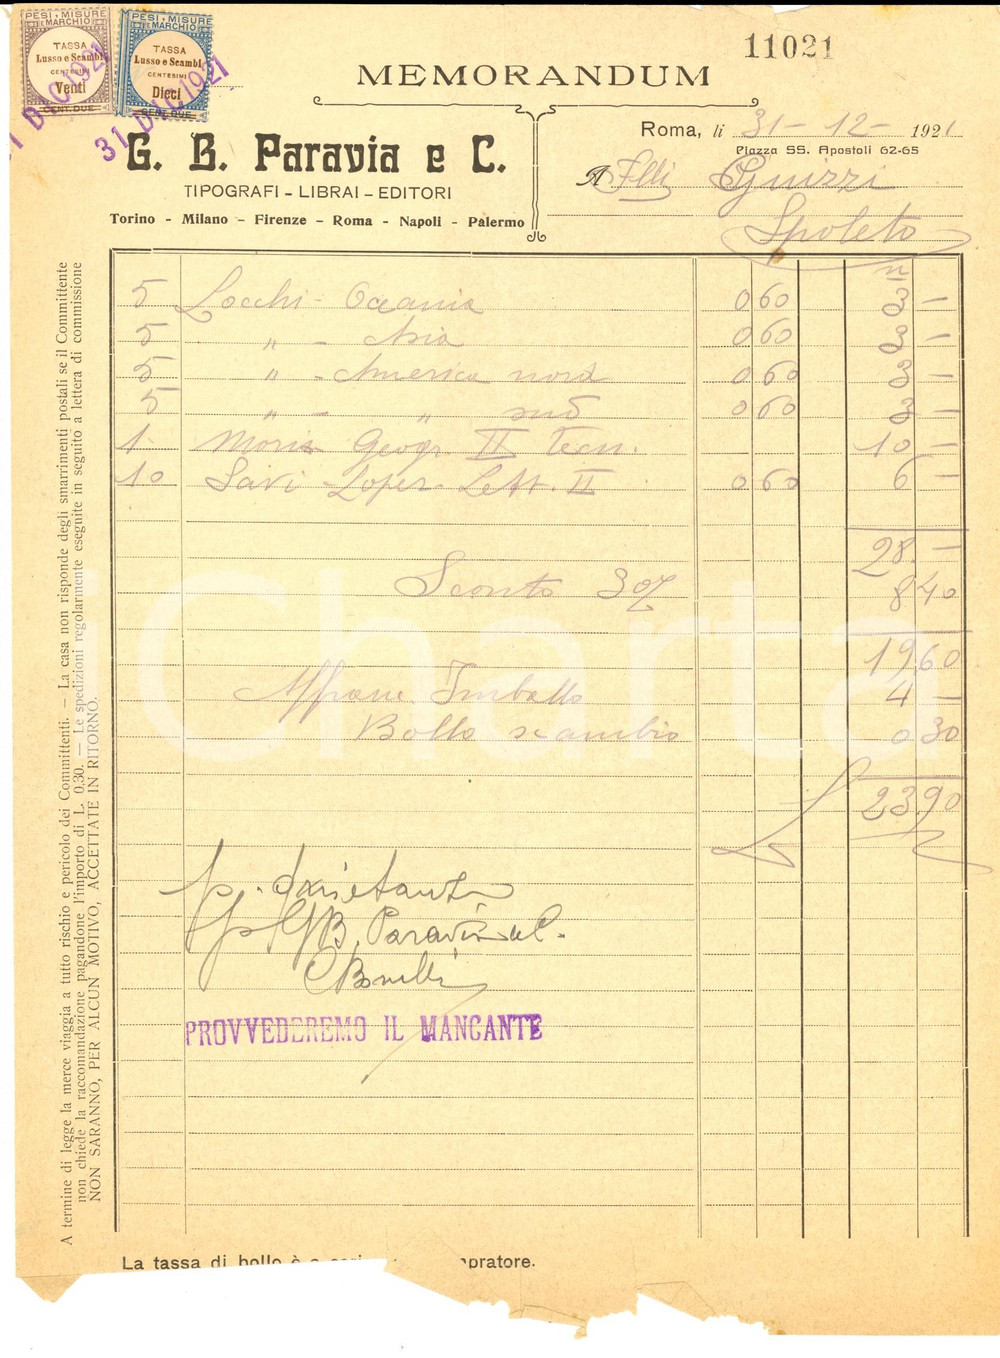 PESI - MISURE E MARCHIO
TASSA
Lusso e Scambi
CENTESIMI
Venti
CENT. DUE
PESI - MISURE E MARCHIO
TASSA
Lusso e Scambi
CENTESIMI
Dieci
CENT. DUE
31 DIC 1921
31 DIC 1921
11021
MEMORANDUM
G. B. Paravia e C.
TIPOGRAFI - LIBRAI - EDITORI
Torino - Milano - Firenze - Roma - Napoli - Palermo
Roma, li 31 - 12 - 1921
Piazza SS. Apostoli 62-65
A Flli Guizzi
Spoleto
5 Locchi - Oceania 0 60 3 -
5 " - Asia 0 60 3 -
5 " - America nord 0 60 3 -
5 " - " sud 0 60 3 -
1 Geogr. II tecn. 10 -
10 Savi-Lopez Lett. II 0 60 6 -
28 -
Sconto 30% 8 40
19 60
Affranc. Imballo 4 -
Bollo scambio 0 30
£ 23 90
G B Paravia e C.
PROVVEDEREMO IL MANCANTE
A termine di legge la merce viaggia a tutto rischio e pericolo dei Committenti. — La casa non risponde degli smarrimenti postali se il Committente
non chiede la raccomandazione pagandone l'importo di L. 0,30. — Le spedizioni regolarmente eseguite in seguito a lettera di commissione
NON SARANNO, PER ALCUN MOTIVO, ACCETTATE IN RITORNO.
La tassa di bollo è a
pratore.
Charta